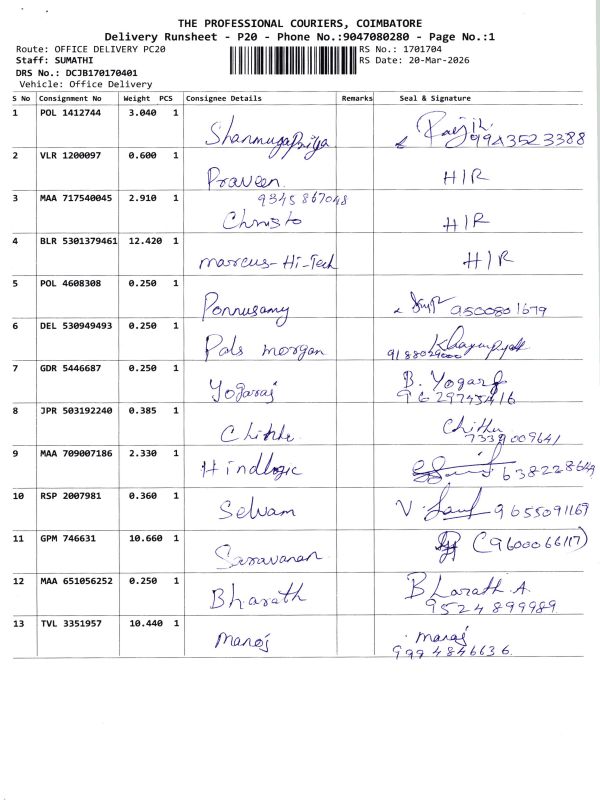 THE PROFESSIONAL COURIERS, COIMBATORE
Delivery Runsheet - P20 - Phone No.:9047080280 - Page No.:1
Route: OFFICE DELIVERY PC20 RS No.: 1701704
Staff: SUMATHI RS Date: 20-Mar-2026
DRS No.: DCJB170170401
Vehicle: Office Delivery
S No Consignment No Weight PCS Consignee Details Remarks Seal & Signature
1 POL 1412744 3.040 1
Shanmugapriya 9943523388
2 VLR 1200097 0.600 1
Praveen. H/R
3 MAA 717540045 2.910 1 9345867048
Christo H/R
4 BLR 5301379461 12.420 1
marcus-Hi-Tech H/R
5 POL 4608308 0.250 1
Ponnusamy 9500801679
6 DEL 530949493 0.250 1
Pals morgan
7 GDR 5446687 0.250 1
Yogaraj B. Yogaraj
8 JPR 503192240 0.385 1
Chithu Chithu
7339009641
9 MAA 709007186 2.330 1
Hindlogic 638228649
10 RSP 2007981 0.360 1
Selvam V. 9655091169
11 GPM 746631 10.660 1
Saravanan (9600066117)
12 MAA 651056252 0.250 1
Bharath Bharath A.
9524899989
13 TVL 3351957 10.440 1
Manoj Manoj
9994846636.